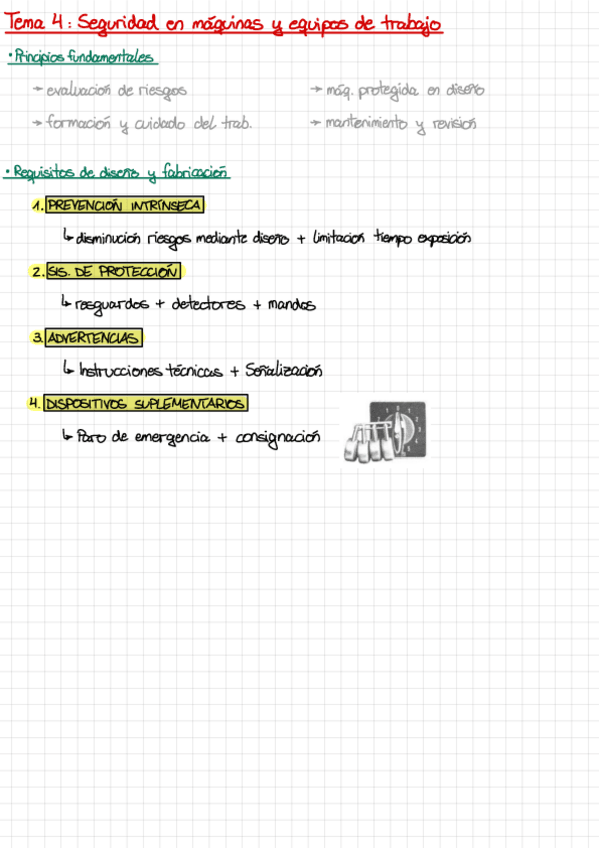 Tema 4: Seguridad en máquinas y equipos de trabajo
• Principios fundamentales
→ evaluación de riesgos → máq. protegida en diseño
→ formación y cuidado del trab. → mantenimiento y revisión
• Requisitos de diseño y fabricación
1. PREVENCIÓN INTRÍNSECA
↳ disminución riesgos mediante diseño + limitación tiempo exposición
2. SIS. DE PROTECCIÓN
↳ resguardos + detectores + mandos
3. ADVERTENCIAS
↳ Instrucciones técnicas + Señalización
4. DISPOSITIVOS SUPLEMENTARIOS
↳ Paro de emergencia + consignación